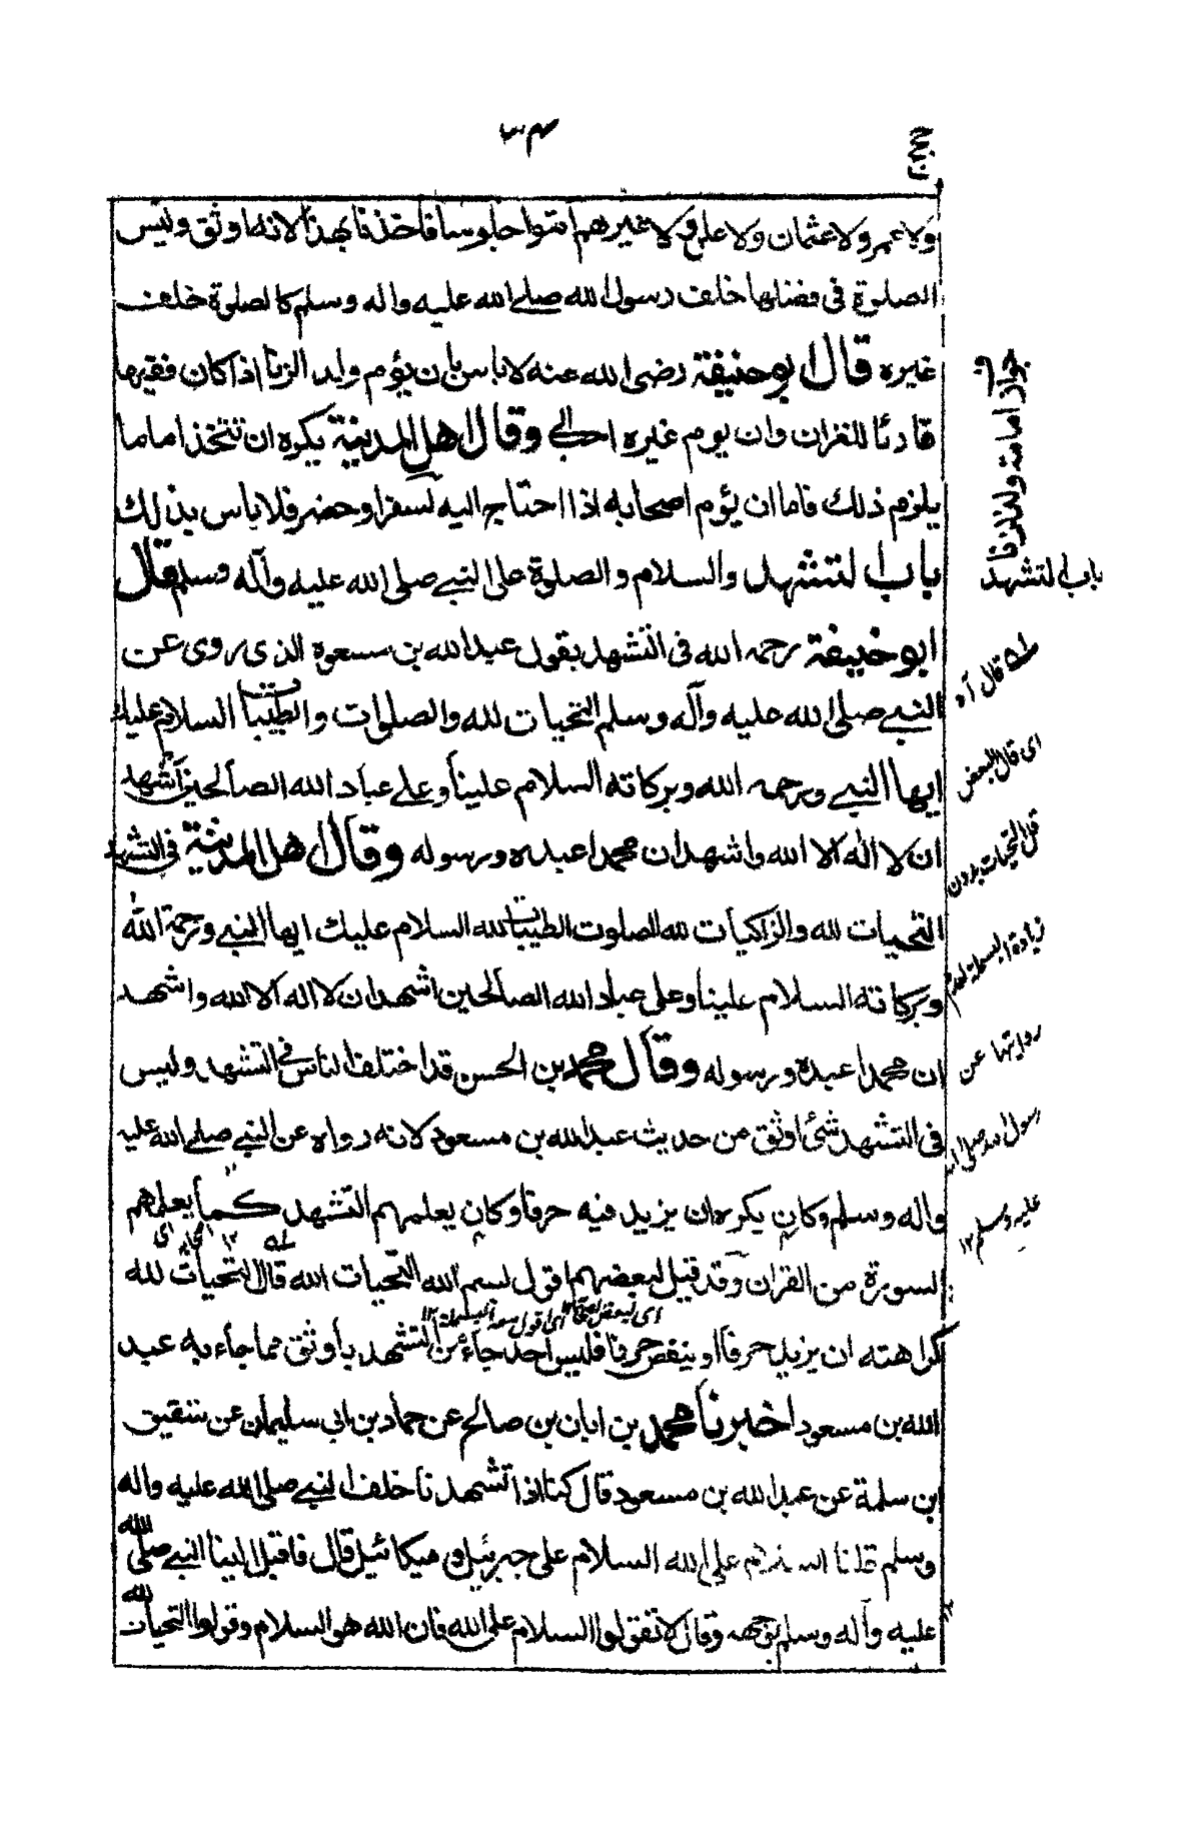 ٣٤
ولا عمر ولا عثمان ولا علي ولا غيرهم امّوا جلوسا فاخذنا بهذا لانه اوثق وليس
الصلوة في فضلها خلف رسول الله صلے الله عليه واله وسلم كالصلوة خلف
غيره قال ابو حنيفة رضى الله عنه لا باس بان يؤم ولد الزنا اذا كان فقيها
قارئا للقران وان يوم غيره احب الي وقال اهل المدينة يكره ان تتخذ اماما
يلزم ذلك فاما ان يؤم اصحابه اذا احتاج اليه لسفر او حضر فلا باس بذلك
باب التشهد والسلام والصلوة على النبي صلى الله عليه وآله وسلم قال
ابو حنيفة رحمه الله في التشهد بقول عبد الله بن مسعود الذي روى عن
النبي صلى الله عليه وآله وسلم التحيات لله والصلوات والطيبات السلام عليك
ايها النبي ورحمه الله وبركاته السلام علينا وعلى عباد الله الصالحين اشهد
ان لا اله الا الله واشهد ان محمدا عبده ورسوله وقال اهل المدينة في التشهد
التحيات لله والزاكيات لله الصلوت الطيبات لله السلام عليك ايها النبي ورحمة الله
وبركاته السلام علينا وعلى عباد الله الصالحين اشهد ان لا اله الا الله واشهد
ان محمدا عبده ورسوله وقال محمد بن الحسن قد اختلف الناس في التشهد وليس
في التشهد شئ اوثق من حديث عبد الله بن مسعود لانه رواه عن النبي صلے الله عليه
واله وسلم وكان يكره ان يزيد فيه حرفا وكان يعلمهم التشهد كما يعلمهم
السورة من القران وقد قيل لبعضهم اقول بسم الله التحيات الله قال التحيات لله
كراهته ان يزيد حرفا او ينقص حرفا فليس احد جاء من التشهد باوثق مما جاء به عبد
الله بن مسعود اخبرنا محمد بن ابان بن صالح عن حماد بن ابي سليمان عن شقيق
ابن سلمة عن عبد الله بن مسعود قال كنا اذا تشهدنا خلف النبي صلى الله عليه واله
وسلم قلنا السلام على الله السلام على جبرئيل وميكائيل قال فاقبل الينا النبي صلى الله
عليه وآله وسلم بوجهه وقال لا تقولوا السلام على الله فان الله هو السلام وقولوا التحيات لله
جواز امامة ولد الزنا
باب التشهد
له قال
اى قال البعض
قل التحيات بدون
زيادة البسملة لعدم
روايتها عن
رسول الله صلى الله
عليه وسلم ١٢